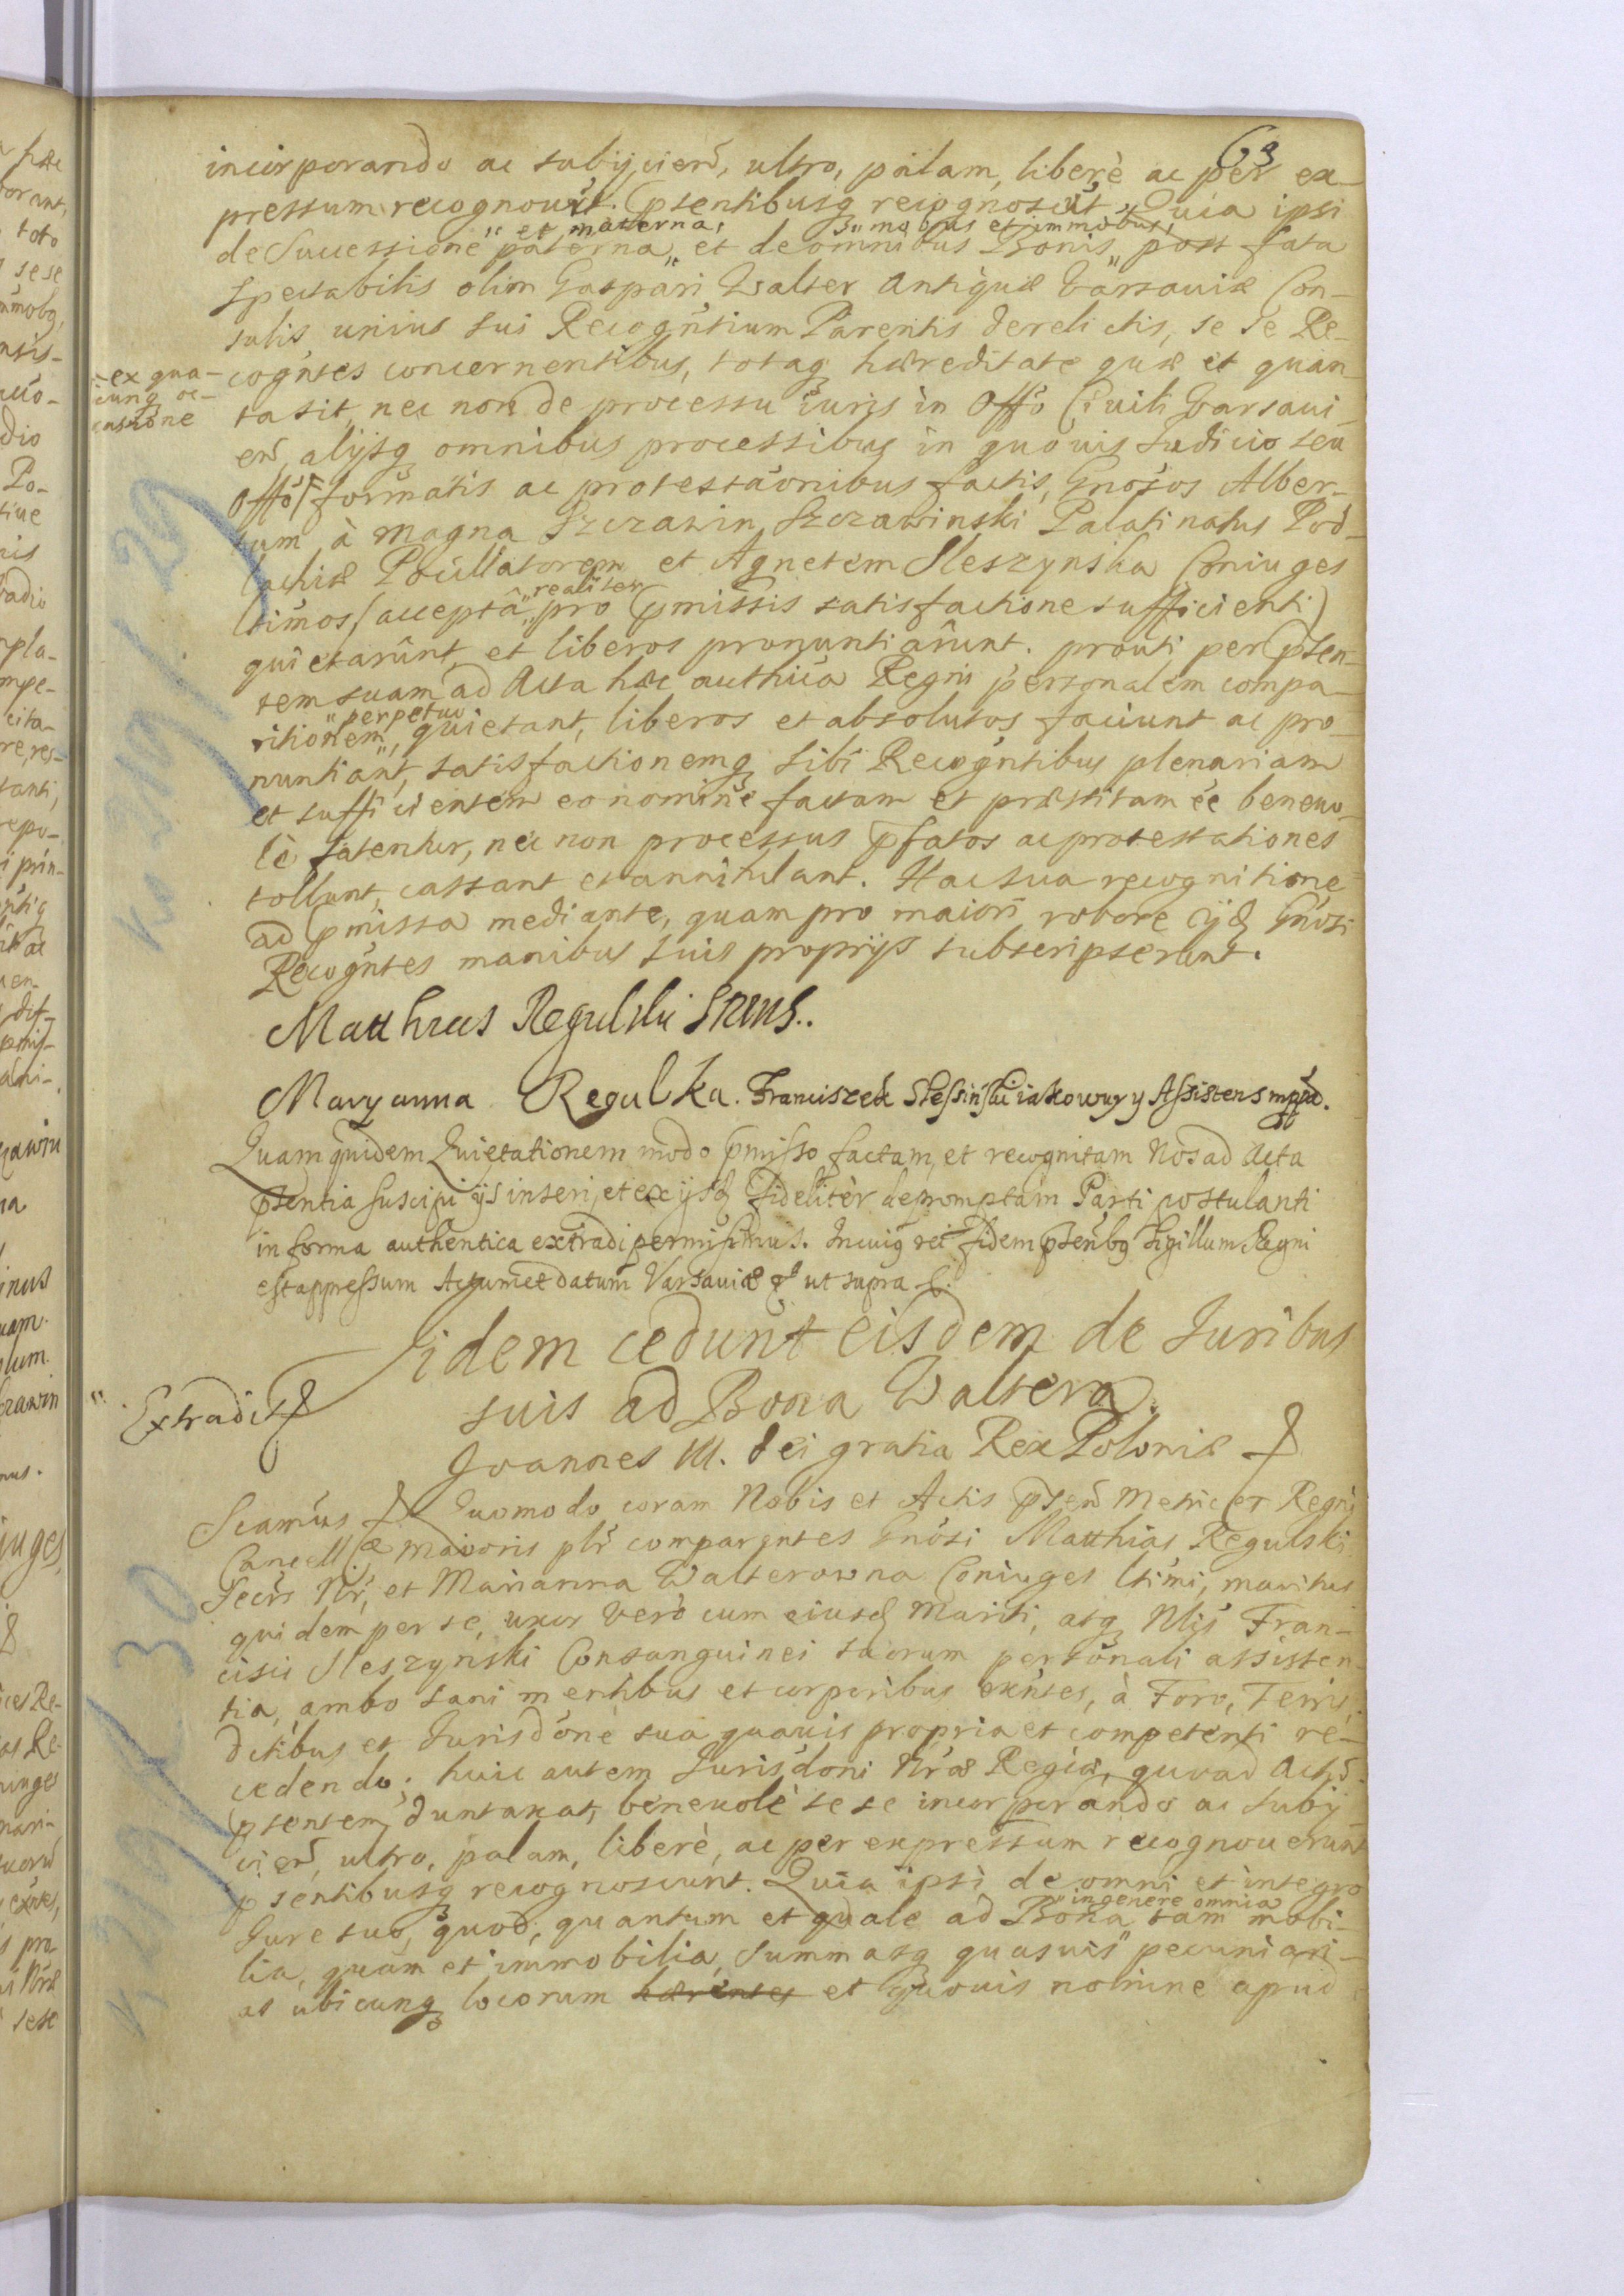 63
incorporando ac subijcien̄, ultro, palam, liberè ac per ex-
pressum recognouȓt. Pſentibusq recognoscūt, Quia ipsi
de Successione paterna " et materna, " et de omnibus Bonis " mobus et immobus, " post fata
spectabilis olim Gaspari Walter Antiquæ Varsauiæ Con-
sulis unius sui Recogn̄tium Parentis derelictis, se se Re-
cogn̄tes concernentibus, totaq hæreditate quæ et quan
ta sit, nec non de processu iuris in Offō Ciuili Varsaui
en̄, alijsq omnibus processibus in quouis Iudicio seu
Offō / formatis ac protestaōnibus factis, Gnōsos Alber-
ex qua-
cunq oc-
casione
tum à Magna Szczawin Szczawinski Palatinatus Pod-
lachiæ Pocillatorem et Agnetem Sleszynska Coniuges
ltimos / acceptâ " realiter " pro pmissis satisfactione sufficienti)
quietarûnt, et liberos pronuntiarûnt. prouti per pſen-
tem suam ad Acta hæc authīca Regni personalem compa-
ritionem " perpetuo " quietant, liberos et absolutos faciunt ac pro-
nuntiant, satisfactionemq sibi Recogn̄tibus plenariam
et sufficientem eo nomine factam et præstitam ēe beneuo
lè fatentur, nec non processus pfatos ac protestationes
tollunt, cassant et annihilant. Hac sua recognitione
ad pmissa mediante, quam pro maiori robore ijd Gnōsi
Recogn̄tes manibus suis proprijs subscripserunt.
Matthias Regulski SRMS..
Maryanna Regulka. Franciszek Slessinski iako wuy y Assistens mppd.
Quam quidem Quietationem modo pmisso factam, et recognitam Nos ad Acta
pſentia suscipi ijs inseri, et ex ijsd fideliter depromptam Parti postulanti
in forma authentica extradi permisimus. In cuiq rei fidem pſen̄bq Sigillum Regni
est appressum Actum et datum Varsauiæ & ut supra &.
Iidem cedunt eisdem de Iuribus
suis ad Bona Waltera.
Extradit
Joannes III. Dei gratia Rex Poloniæ &
Scamus & Quomodo coram Nobis et Actis pſen̄ Metrices Regni
Cancell æ Maioris plr̄ comparentes Gnōsi Matthias Regulski
Secrs Nr̄, et Marianna Walterowna Coniuges ltimi, maritus
quidem per se, uxor vero cum eiusd Mariti, atq Nlis Fran-
cisci Sleszynski Consanguinei suorum personali assisten-
tia, ambo sani mentibus et corporibus exn̄tes, à Foro, Terris,
Dctibus et Jurisdōne sua quauis propria et competenti re-
cedendo; huic autem Jurisdōni Nræ Regiæ, quoad Actū
pſentem duntaxat, beneuolè se se incorporando ac subij
cien̄, ultro, palam, liberè, ac per expressum recognouerunt
pſentibusq recognoscunt. Quia ipsi de omni et integro
Iure suo, quod, quantum et quale ad Bona " in genere omnia " tam mobi-
lia, quam et immobilia, Summasq quasuis pecuniari-
as ubicunq locorum hærentes et quouis nomine apud